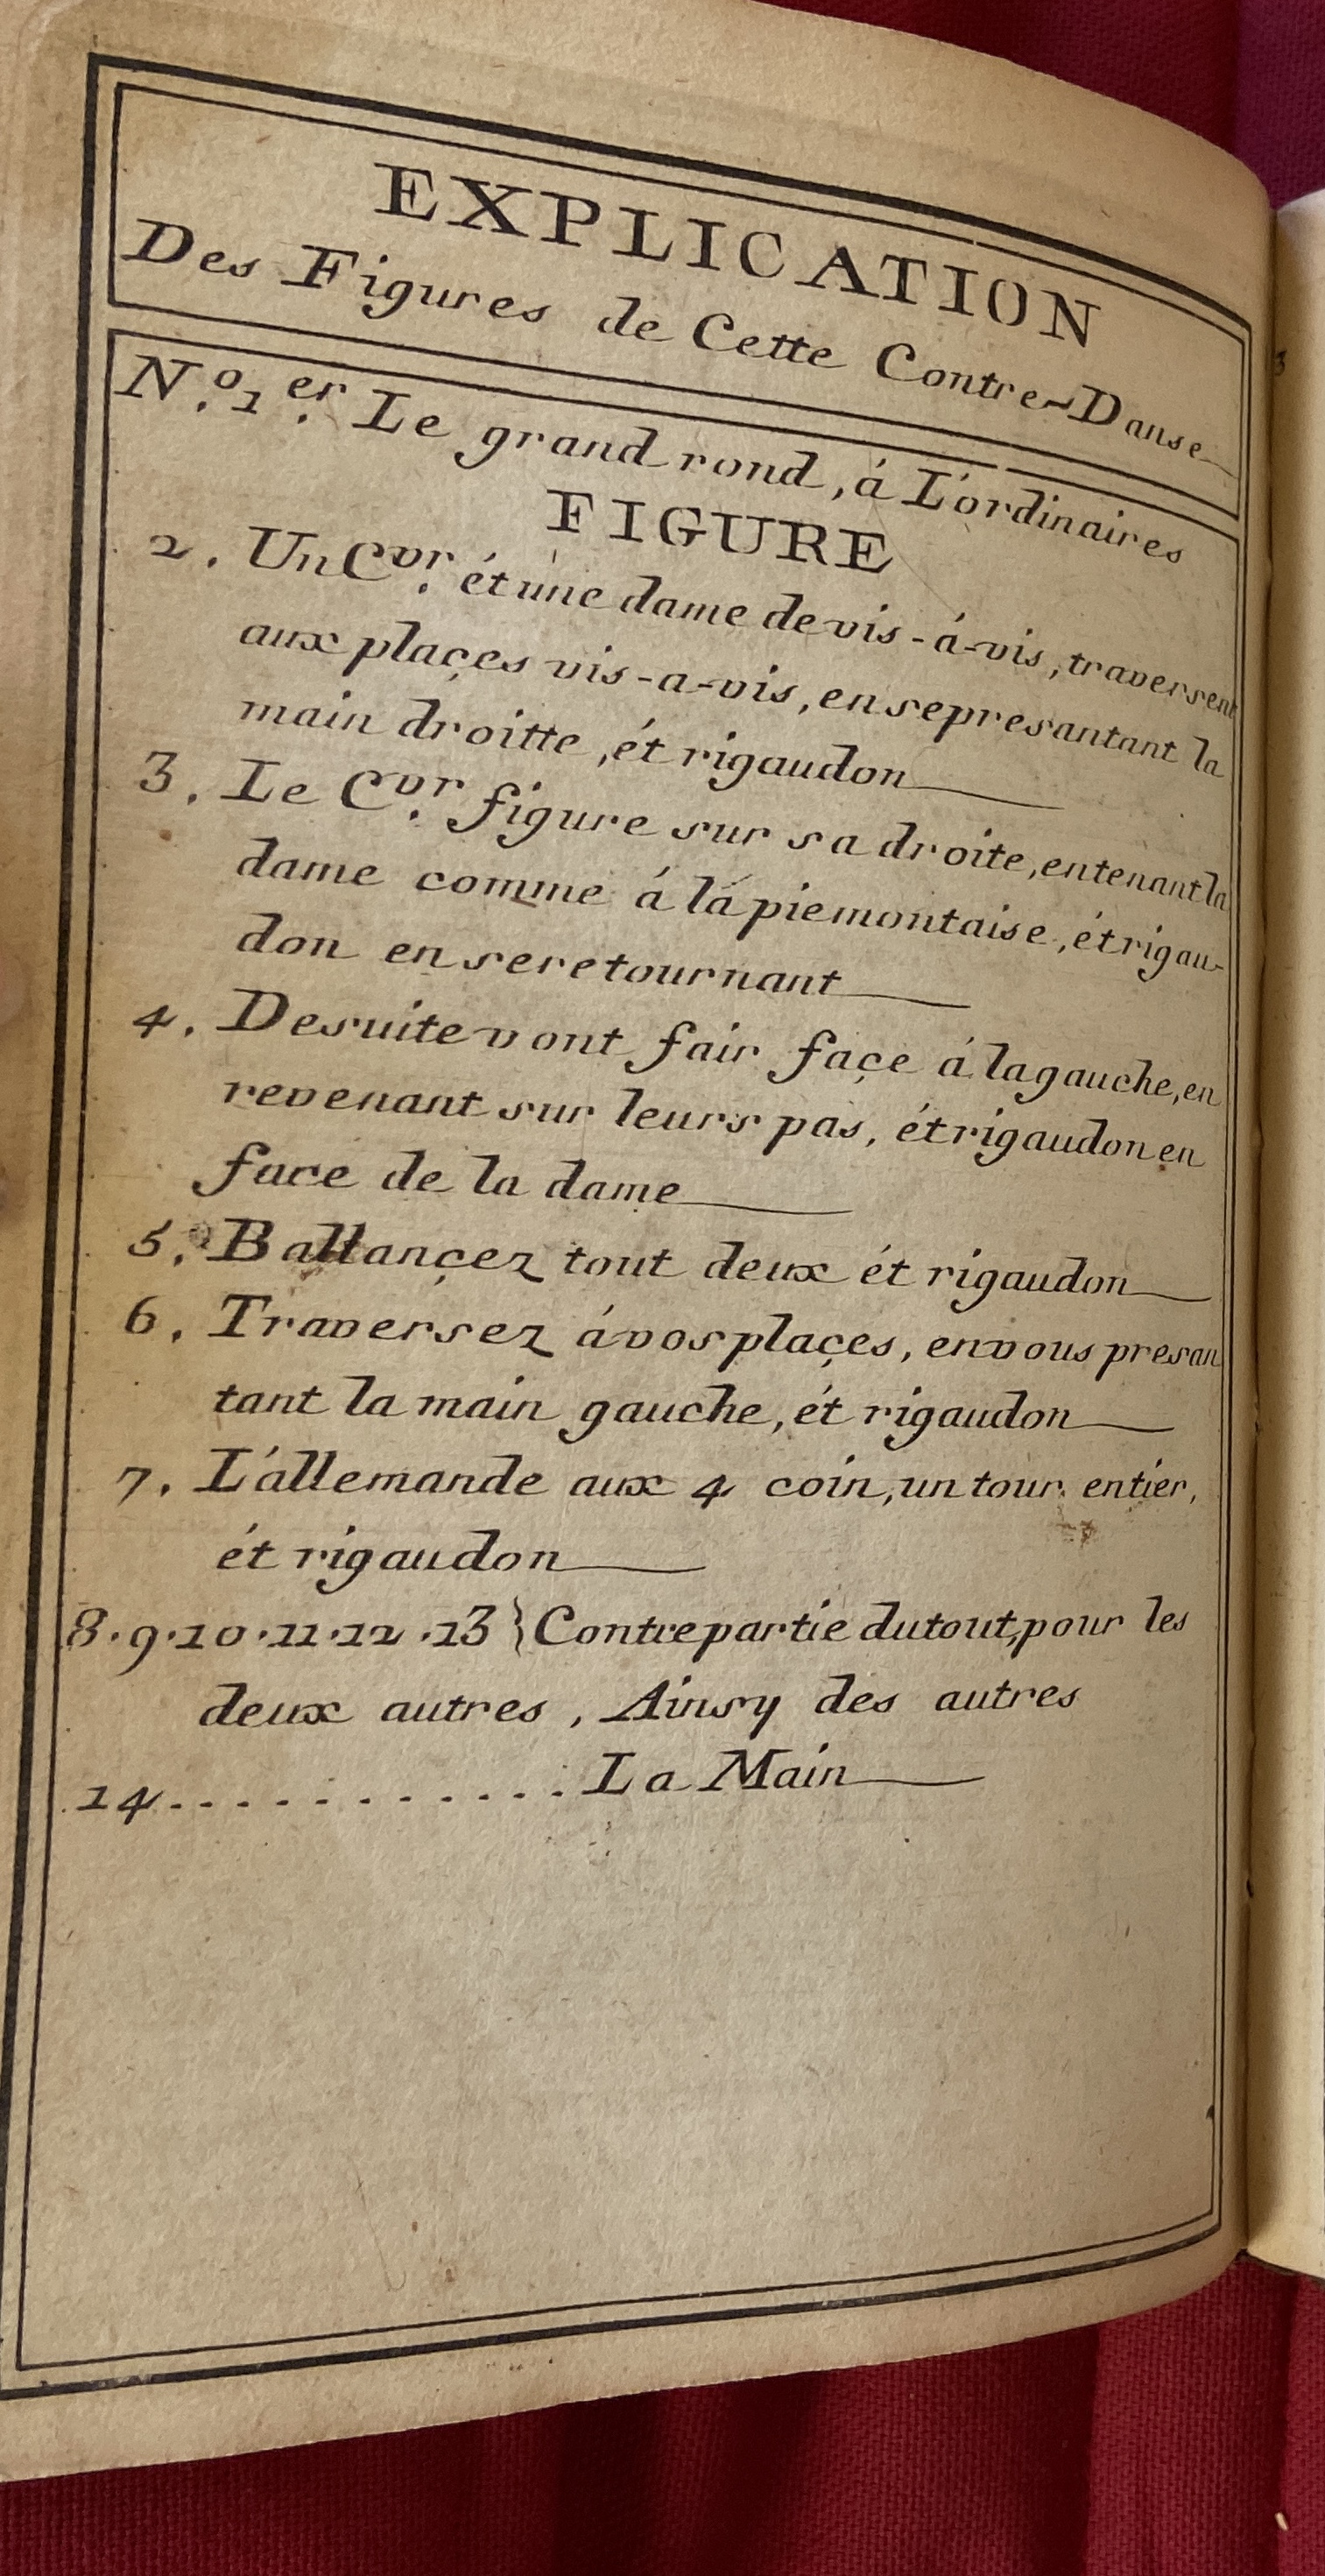 EXPLICATION
Des Figures de Cette Contre-Danse
N.º 1.er Le grand rond, á L'ordinaires
FIGURE
2. Un C.vr ét une dame de vis-á-vis, traversent
aux plaçes vis-a-vis, en se presantant la
main droitte, ét rigaudon
3. Le C.vr figure sur sa droite, en tenant la
dame comme á la piemontaise, ét rigau-
don en se retournant
4. De suite vont fair façe á la gauche, en
revenant sur leurs pas, ét rigaudon en
face de la dame
5. Ballançez tout deux ét rigaudon
6. Traversez á vos plaçes, en vous presan
tant la main gauche, ét rigaudon
7. L'allemande aux 4 coin, un tour entier,
ét rigaudon
8.9.10.11.12.13} Contrepartie du tout, pour les
deux autres, Ainsy des autres
14............ La Main
3